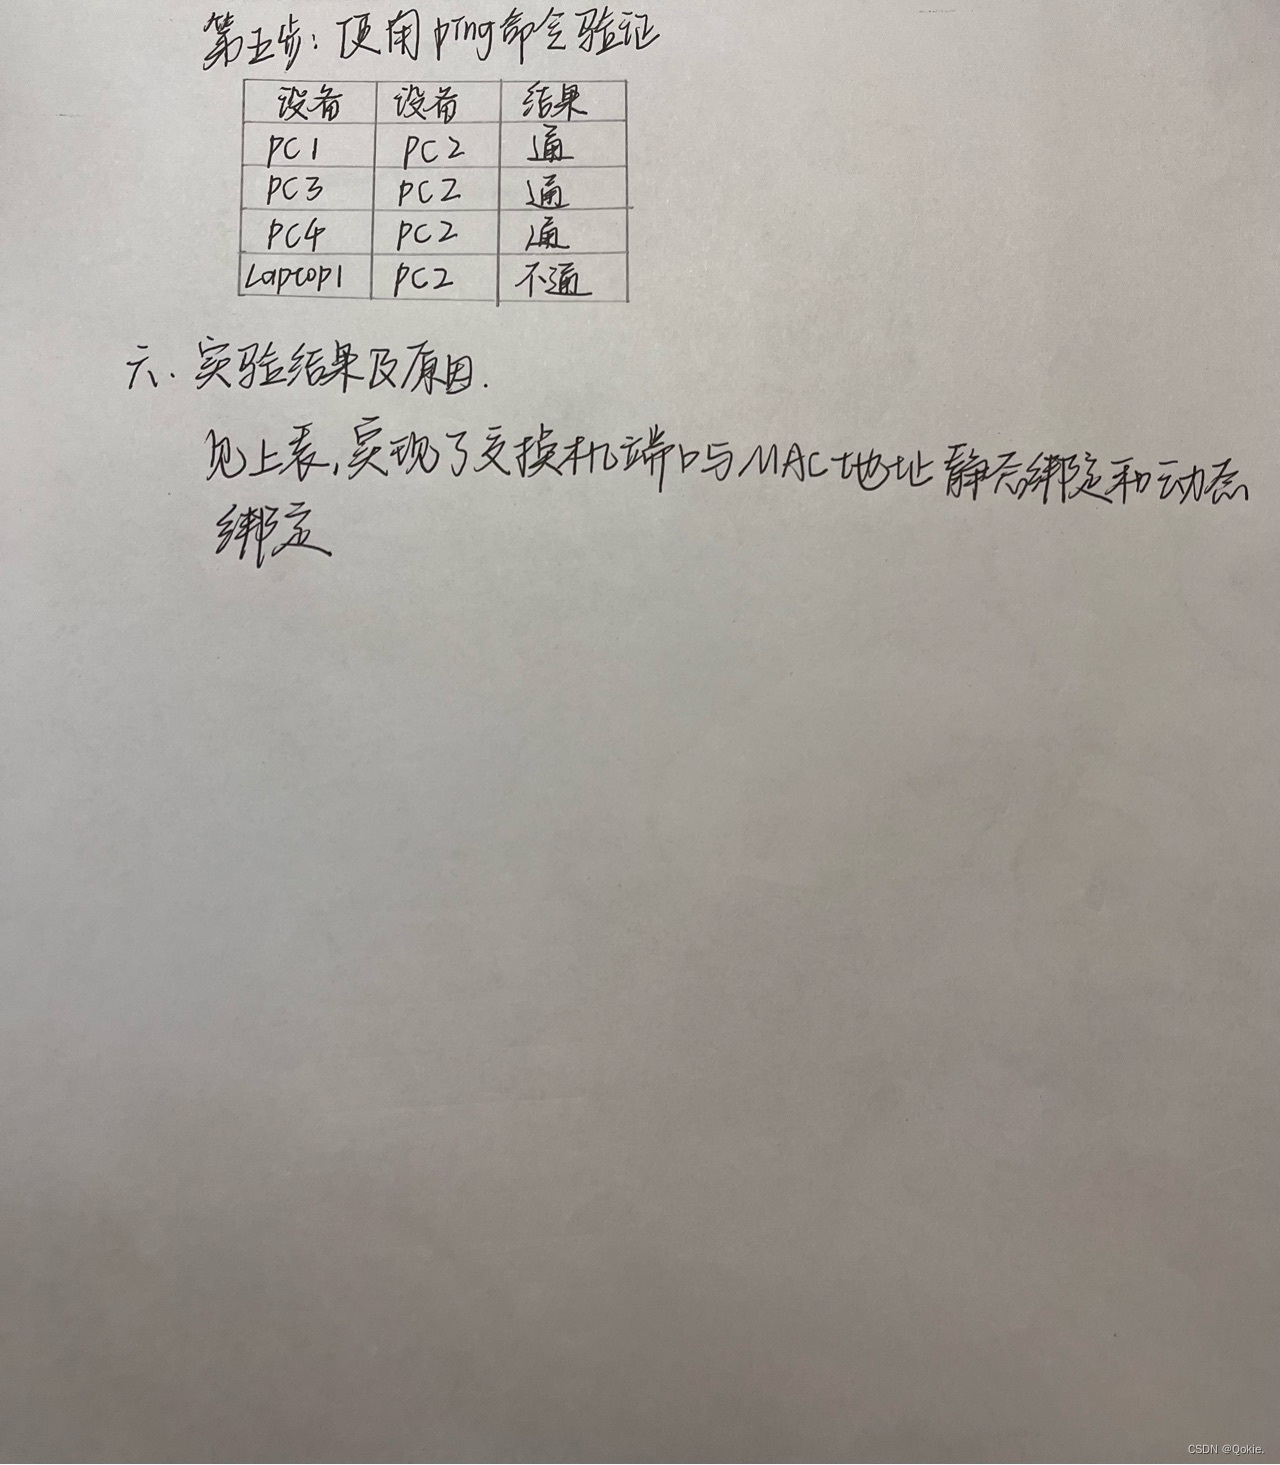 第五步：使用ping命令验证
设备 设备 结果
PC1 PC2 通
PC3 PC2 通
PC4 PC2 通
Laptop1 PC2 不通
六、实验结果及原因.
见上表,实现了交换机端口与MAC地址静态绑定和动态
绑定
CSDN @Qokie.